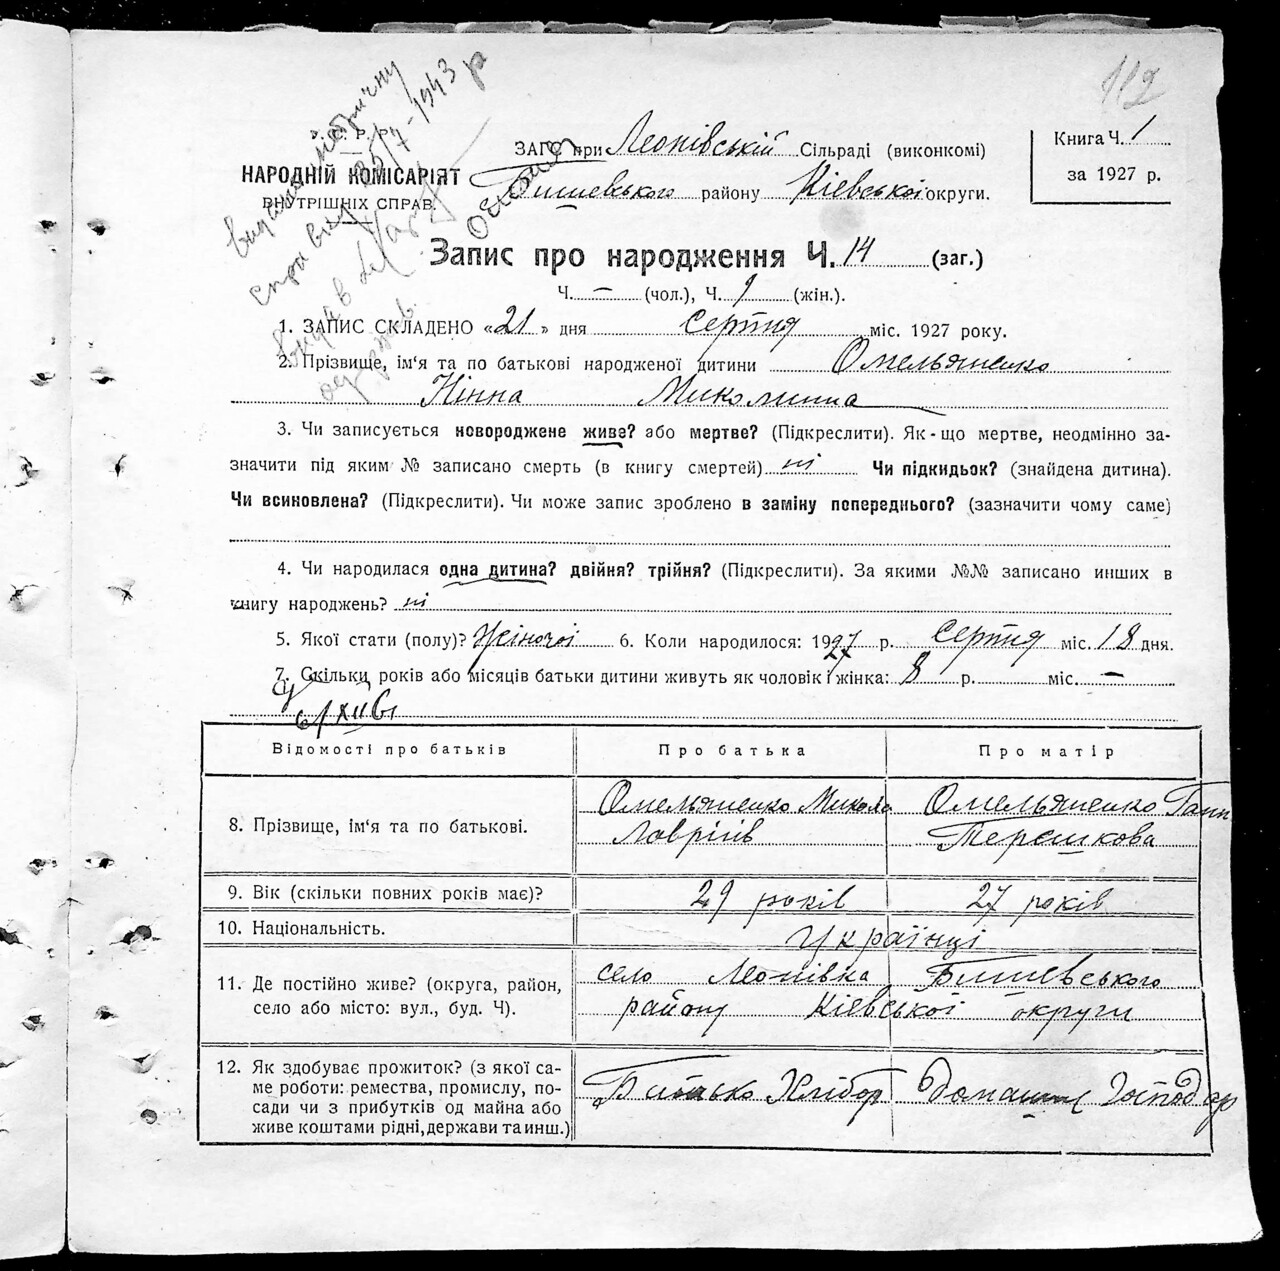 112
У. С. Р. Р.
НАРОДНІЙ КОМІСАРІЯТ
ВНУТРІШНІХ СПРАВ.
ЗАГС при Леонівській Сільраді (виконкомі)
Бишевського району Київської округи.
Книга Ч. 1
за 1927 р.
видана метричну
справку 25/7-1943 р
Запис про народження Ч. 14 (заг.)
Ч. — (чол.), Ч. 9 (жін.).
1. ЗАПИС СКЛАДЕНО «21» дня серпня міс. 1927 року.
2. Прізвище, ім'я та по батькові народженої дитини Омельяненко
Нінна Миколишна
3. Чи записується новороджене живе? або мертве? (Підкреслити). Як-що мертве, неодмінно за-
значити під яким № записано смерть (в книгу смертей) ні Чи підкидьок? (знайдена дитина).
Чи всиновлена? (Підкреслити). Чи може запис зроблено в заміну попереднього? (зазначити чому саме)
4. Чи народилася одна дитина? двійня? трійня? (Підкреслити). За якими №№ записано инших в
книгу народжень? ні
5. Якої стати (полу)? Жіночої 6. Коли народилося: 1927 р. серпня міс. 18 дня.
7. Скільки років або місяців батьки дитини живуть як чоловік і жінка: 8 р. міс. —
Відомості про батьків Про батька Про матір
8. Прізвище, ім'я та по батькові. Омельяненко Микола Лаврінів Омельяненко Ганн Терешкова
9. Вік (скільки повних років має)? 29 років 27 років
10. Національність. Українці
11. Де постійно живе? (округа, район, село Леонівка Бишевського
село або місто: вул., буд. Ч). району Київської округи
12. Як здобуває прожиток? (з якої са-
ме роботи: ремества, промислу, по-
сади чи з прибутків од майна або
живе коштами рідні, держави та инш.) Батько Хлібор Домашнє Господар